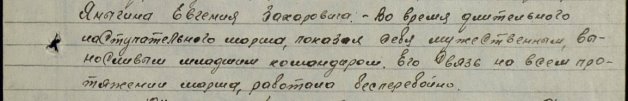 Яныгина Евгения Захаровича: - Во время длительного
наступательного марша, показал себя мужественным, вы-
носливым младшим командиром. Его связь на всем про-
тяжении марша, работала бесперебойно.